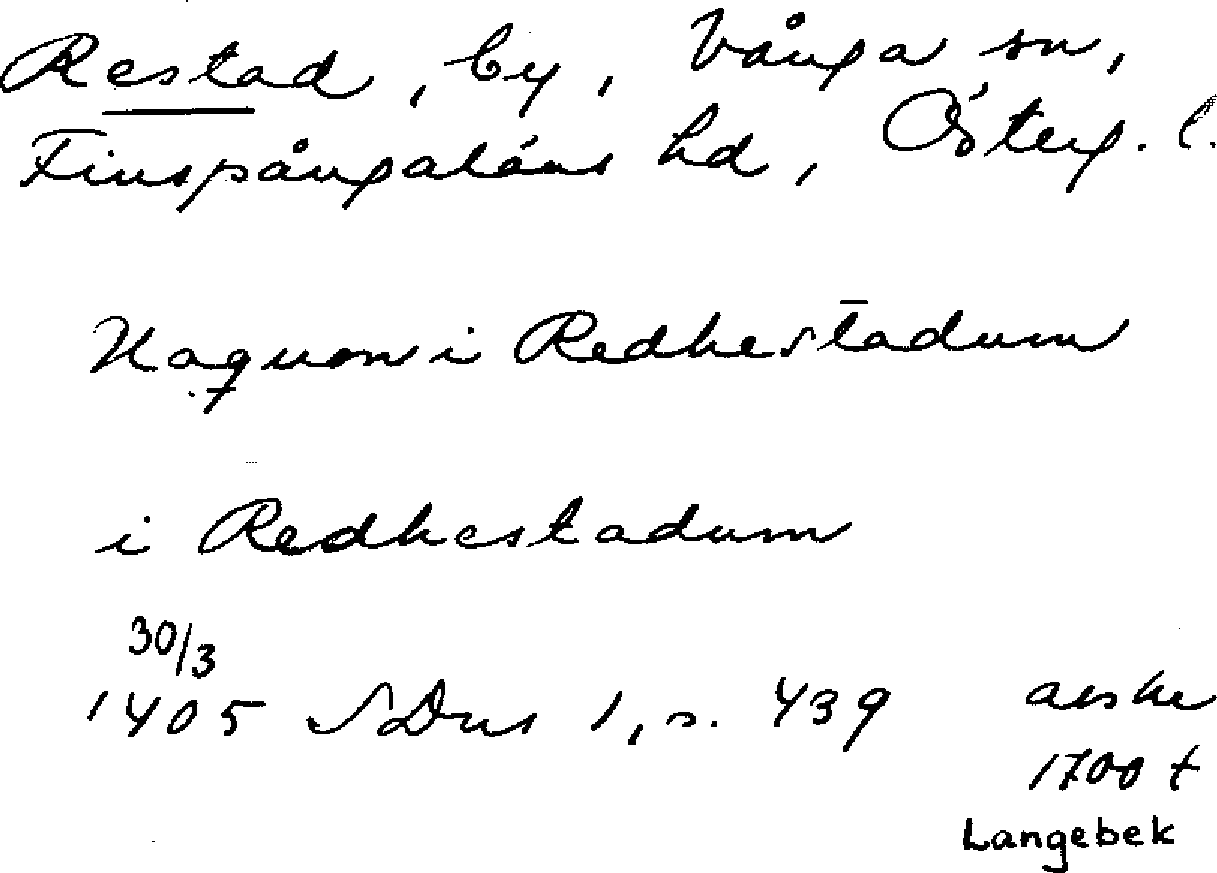 Restad, by, Vånga sn,
Finspångaläns hd, Österg. l.
Haquon i Redhestadum
i Redhestadum
30/3
1405 SDns 1, s. 439 avskr
1700 t
Langebek